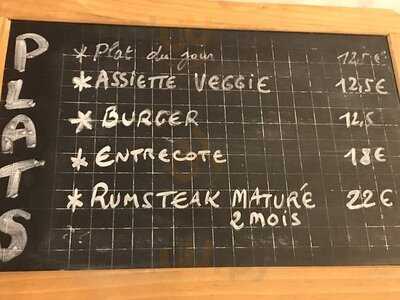 PLATS
* Plat du jour 12,5€
* ASSIETTE VEGGIE 12,5€
* BURGER 12,5
* ENTRECOTE 18€
* RUMSTEAK MATURÉ 22€
2 MOIS